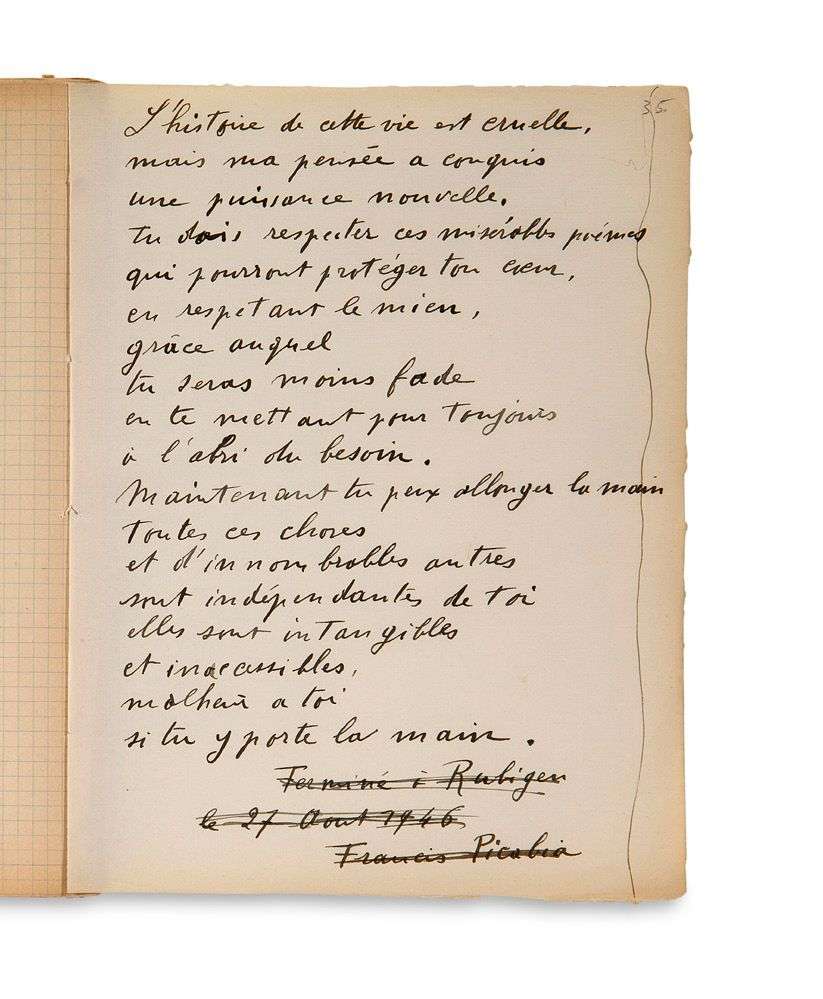 35
L'histoire de cette vie est cruelle,
mais ma pensée a conquis
une puissance nouvelle.
Tu dois respecter ces misérables poémes
qui pourront protéger ton cœur,
en respetant le mien,
grâce auquel
tu seras moins fade
en te mettant pour toujours
à l'abri du besoin.
Maintenant tu peux allonger la main
Toutes ces choses
et d'innombrables autres
sont indépendantes de toi
elles sont intangibles
et inacessibles,
malheur a toi
si tu y porte la main.
Terminé à Rubigen
le 27 Aout 1946
Francis Picabia